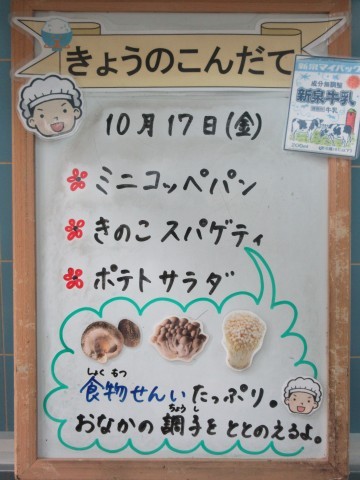 きょうのこんだて
10月17日(金)
成分無調整
新泉牛乳
ミニコッペパン
きのこスパゲティ
ポテトサラダ
しょくもつ
食物せんいたっぷり。
ちょうし
おなかの調子をととのえるよ。